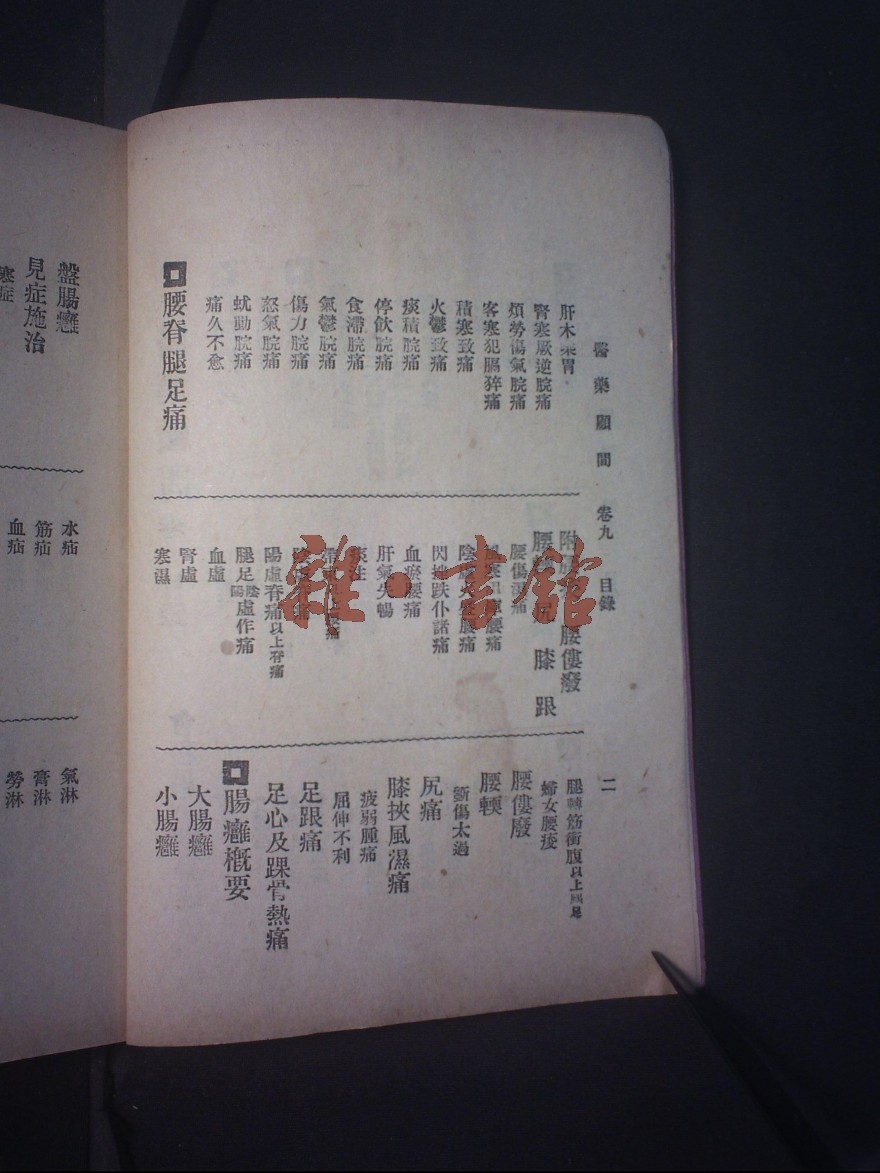 醫藥顧問 卷九 目錄 二
肝木乘胃
腎寒厥逆脘痛
煩勞傷氣脘痛
客寒犯膈猝痛
積寒致痛
火鬱致痛
痰積脘痛
停飲脘痛
食滯脘痛
氣鬱脘痛
傷力脘痛
怒氣脘痛
蚘動脘痛
痛久不愈
腰脊腿足痛
附 腰僂廢
腰 膝 跟
腰傷濕痛
寒 腰痛
陰虛 腰痛
閃挫跌仆諸痛
血瘀腰痛
肝氣失暢
痰注
痛
痛
陽虛脊痛以上脊痛
腿足陰陽虛作痛
血虛
腎虛
寒濕
腿轉筋衝腹以上腿足
婦女腰痠
腰僂廢
腰輭
斵傷太過
尻痛
膝挾風濕痛
疲弱腫痛
屈伸不利
足跟痛
足心及踝骨熱痛
腸癰概要
大腸癰
小腸癰
盤腸癰
見症施治
寒症
水疝
筋疝
血疝
氣淋
膏淋
勞淋
雜·書館